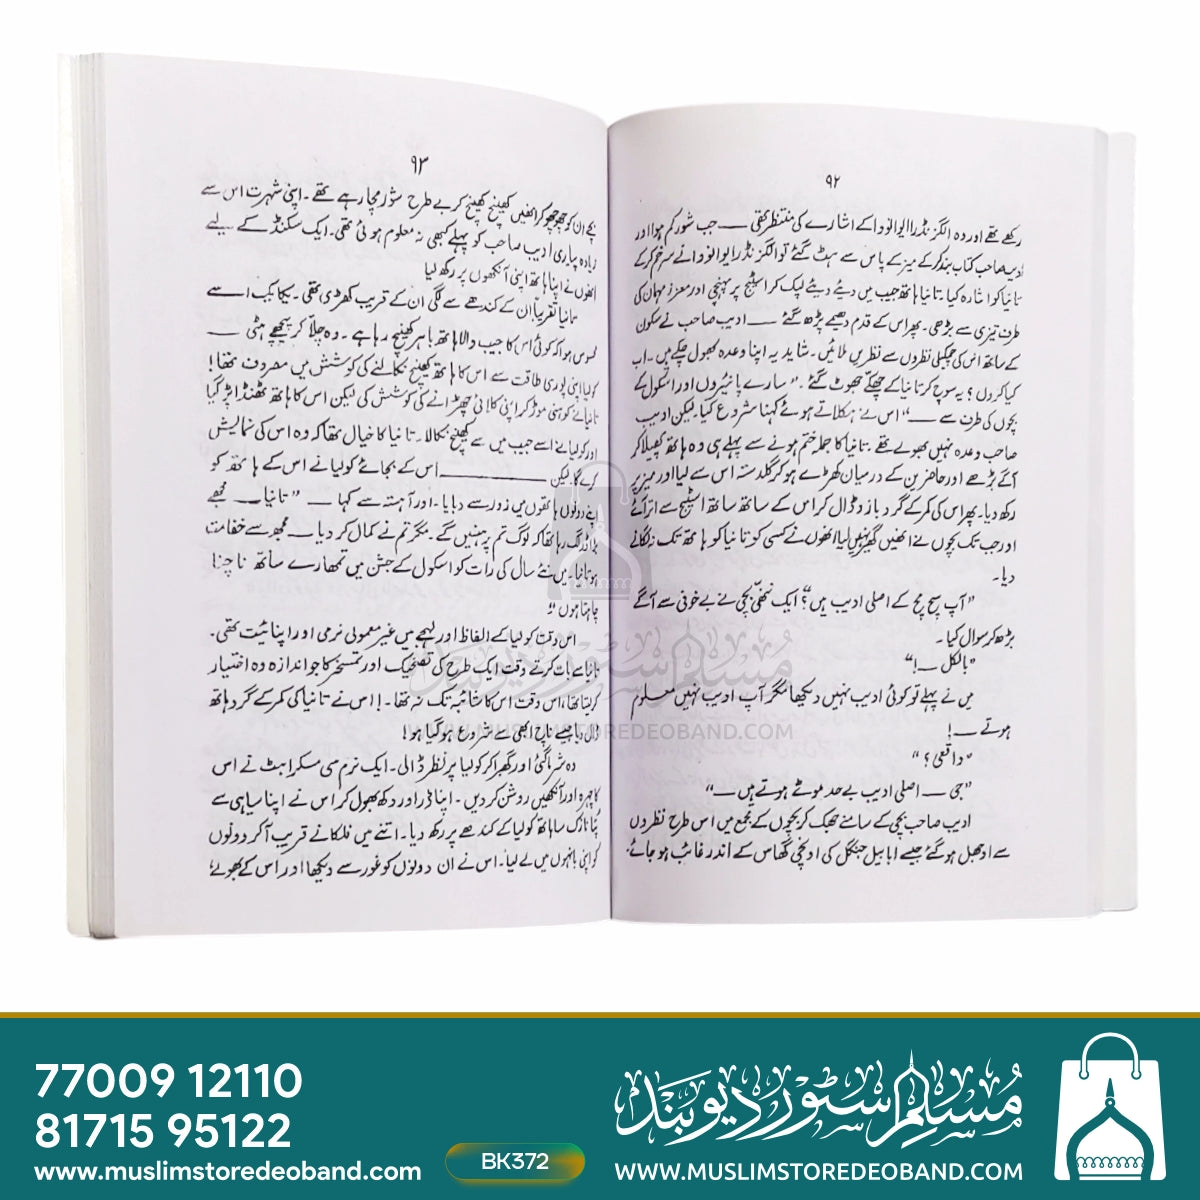 ۹۲
رکھے تھے اور وہ الگزنڈرا ایوانووا کے اشارے کی منتظر تھی ــــ جب شور کم ہوا اور
ادیب صاحب کتاب بند کر کے میز کے پاس سے ہٹ گئے تو الگزنڈرا ایوانووا نے سر خم کر کے
تانیا کو اشارہ کیا۔ تانیا ہاتھ جیب میں دیئے دیئے لپک کر اسٹیج پر پہنچی اور معزز مہمان کی
طرف تیزی سے بڑھی۔ پھر اس کے قدم دھیمے پڑھ گئے ــــ ادیب صاحب نے سکون
کے ساتھ اس کی چمکیلی نظروں سے نظریں ملائیں۔ شاید یہ اپنا وعدہ بھول چکے ہیں۔ اب
کیا کروں؟ یہ سوچ کر تانیا کے چھکے چھوٹ گئے۔ "سارے پانیروں اور اسکول کے
بچوں کی طرف سے ــــ" اس نے ہکلاتے ہوئے کہنا شروع کیا۔ لیکن ادیب
صاحب وعدہ نہیں بھولے تھے۔ تانیا کا جملہ ختم ہونے سے پہلے ہی وہ ہاتھ پھیلا کر
آگے بڑھے اور حاضرین کے درمیان کھڑے ہو کر گلدستہ اس سے لیا اور میز پر
رکھ دیا۔ پھر اس کی کمر کے گرد بازو ڈال کر اس کے ساتھ ساتھ اسٹیج سے اتر آئے
اور جب تک بچوں نے انھیں گھیر نہیں لیا انھوں نے کسی کو تانیا کو ہاتھ تک نہ لگانے
دیا۔
"آپ سچ مچ کے اصلی ادیب ہیں؟" ایک ننھی بچی نے بے خوفی سے آگے
بڑھ کر سوال کیا۔
"بالکل ــــ!"
میں نے پہلے تو کوئی ادیب نہیں دیکھا مگر آپ ادیب نہیں معلوم
ہوتے ــــ!
"واقعی؟"
"جی ــــ اصلی ادیب بے حد موٹے ہوتے ہیں ــــ"
ادیب صاحب بچی کے سامنے جھک کر بچوں کے مجمع میں اس طرح نظروں
سے اوجھل ہو گئے جیسے ابابیل جنگل کی اونچی گھاس کے اندر غائب ہو جائے۔
۹۳
بچے ان کو چھو چھو کر انھیں کھینچ کھینچ کر بے طرح شور مچا رہے تھے۔ اپنی شہرت اس سے
زیادہ پیاری ادیب صاحب کو پہلے کبھی نہ معلوم ہوئی تھی۔ ایک سکنڈ کے لیے
انھوں نے اپنا ہاتھ اپنی آنکھوں پر رکھ لیا
تانیا تقریباً ان کے کندھے سے لگی ان کے قریب کھڑی تھی۔ یکایک اسے
محسوس ہوا کہ کوئی اس کا جیب والا ہاتھ باہر کھینچ رہا ہے۔ وہ چلا کر پیچھے ہٹی ــــ
کولیا اپنی پوری طاقت سے اس کا ہاتھ کھینچ نکالنے کی کوشش میں مصروف تھا!
تانیا نے کوہنی موڑ کر اپنی کلائی چھڑانے کی کوشش کی لیکن اس کا ہاتھ ٹھنڈا پڑ گیا
اور کولیا نے اسے جیب میں سے کھینچ نکالا۔ تانیا کا خیال تھا کہ وہ اس کی نمائش
کرے گا۔ لیکن ــــــــ اس کے بجائے کولیا نے اس کے ہاتھ کو
اپنے دونوں ہاتھوں میں زور سے دبایا۔ اور آہستہ سے کہا ــــ "تانیا ــــ مجھے
بڑا ڈر لگ رہا تھا کہ لوگ تم پر ہنسیں گے۔ مگر تم نے کمال کر دیا ــــ مجھ سے خفا مت
ہو تانیا۔ میں نئے سال کی رات کو اسکول کے جشن میں تمھارے ساتھ ناچنا
چاہتا ہوں"
اس وقت کولیا کے الفاظ اور لہجے میں غیر معمولی نرمی اور اپنائیت تھی۔
تانیا سے بات کرتے وقت ایک طرح کی تضحیک اور تمسخر کا جو اندازہ وہ اختیار
کر لیتا تھا، اس وقت اس کا شائبہ تک نہ تھا۔ اس نے تانیا کی کمر کے گرد ہاتھ
ڈال دیا جیسے ناچ ابھی سے شروع ہو گیا ہو!
وہ شرما گئی اور گھبرا کر کولیا پر نظر ڈالی۔ ایک نرم سی مسکراہٹ نے اس
کا چہرہ اور آنکھیں روشن کر دیں۔ اپنا ڈر اور دکھ بھول کر اس نے اپنا سیاہی سے
پُتا نازک سا ہاتھ کولیا کے کندھے پر رکھ دیا۔ اتنے میں فلکا نے قریب آ کر دونوں
کو اپنی بانہوں میں لے لیا۔ اس نے ان دونوں کو غور سے دیکھا اور اس کے بھولے
مسلم سٹور دیوبند
WWW.MUSLIMSTOREDEOBAND.COM
77009 12110
81715 95122
www.muslimstoredeoband.com
BK372
مسلم سٹور دیوبند
WWW.MUSLIMSTOREDEOBAND.COM